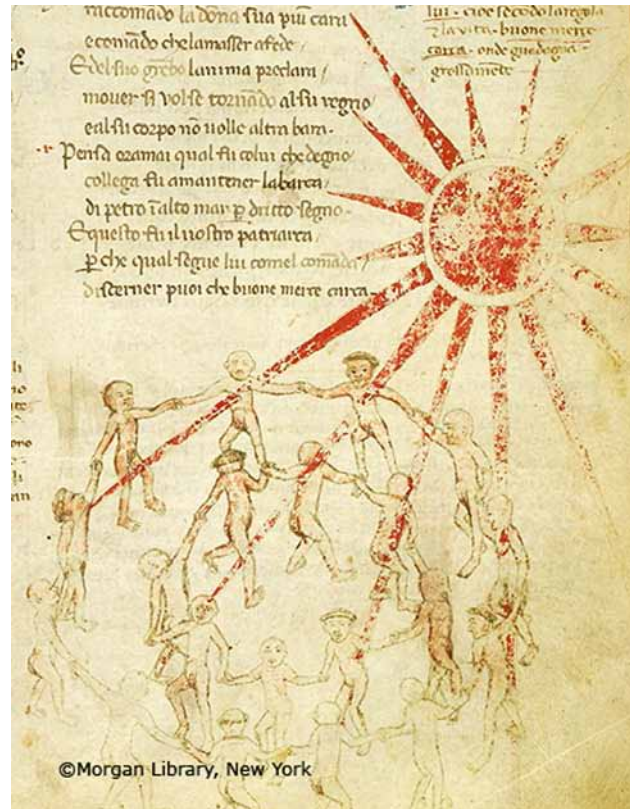 raccomādo la dōna sua piu cara
e comādo che lamasser afede
E del suo grēbo lanima preclara
mover si volse tornādo al su regno
e al su corpo nō uolle altra bara
Pensa oramai qual fu colui che degno
collega fu a mantener la barca
di petro ī alto mar ꝑ dritto segno
E questo fu il nostro patriarca
ꝑ che qual segue lui comel comāda
discerner puoi che buone merce carca
lui · cioe secōdo la regola
buone merce
carca · onde guadagna
©Morgan Library, New York